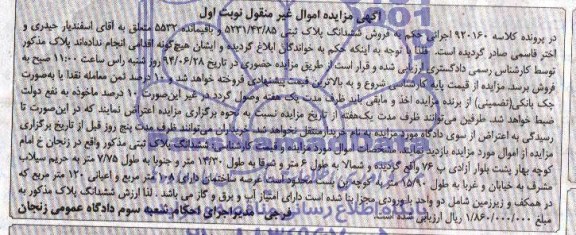 آگهی مزایده اموال غیر منقول نوبت اول
در پرونده کلاسه ۹۲۰۱۶۰ اجرائی حکم به فروش ششدانگ پلاک ثبتی ۵۲۲۱/۴۳/۸۵ و باقیمانده ۵۵۳۲ متعلق به آقای اسفندیار حیدری و
اختر قاسمی صادر گردیده است. فلذا با توجه به اینکه حکم به خواندگان ابلاغ گردیده و ایشان هیچ گونه اقدامی انجام نداده‌اند پلاک مذکور
توسط کارشناس رسمی دادگستری ارزیابی شده و قرار است از طریق مزایده حضوری در تاریخ ۹۴/۰۶/۲۸ روز شنبه راس ساعت ۱۱:۰۰ صبح به
فروش برسد. مزایده از قیمت پایه کارشناسی شروع و به بالاترین قیمت پیشنهادی فروخته خواهد شد و ۱۰ درصد ثمن معامله نقدا یا به‌صورت
چک بانکی(تضمینی) از برنده مزایده اخذ و مابقی باید ظرف مدت یک هفته وصول گردد در غیر این‌صورت ۱۰ درصد ماخوذه به نفع دولت
ضبط خواهد شد. طرفین می‌توانند ظرف مدت یک‌هفته از تاریخ مزایده نسبت به نحوه برگزاری مزایده اعتراض نمایند که در این‌صورت تا
رسیدگی به اعتراض از سوی دادگاه مورد مزایده به نام خریدار منتقل نخواهد شد. خریداران می‌توانند ظرف مدت پنج روز قبل از تاریخ برگزاری
مزایده از اموال مورد مزایده بازدید نمایند. مشخصات اموال مورد مزایده و قیمت کارشناسی: ششدانگ پلاک ثبتی مذکور واقع در زنجان خ امام
کوچه بهار پشت بلوار آزادی پ ۷۶ واقع گردیده و شمالا به طول ۶ متر و شرقا به طول ۱۴/۳۰ متر و جنوبا به طول ۷/۷۵ متر به حریم سیلاب
مشرف به خیابان و غربا به طول ۱۵/۹۰ متر به کوچه بن بست محدود است عرصه ساختمان دارای متر مربع و اعیانی ۱۲۰ متر مربع که
در همکف و زیرزمین شامل دو واحد با ورودی مجزا بنا شده است دارای امتیاز آب و برق و گاز می باشد. لذا ارزش ششدانگ پلاک مذکور به
مبلغ ۱/۸۶۰/۰۰۰/۰۰۰ ریال ارزیابی شده است. فرجی مدیر اجرای احکام شعبه سوم دادگاه عمومی زنجان